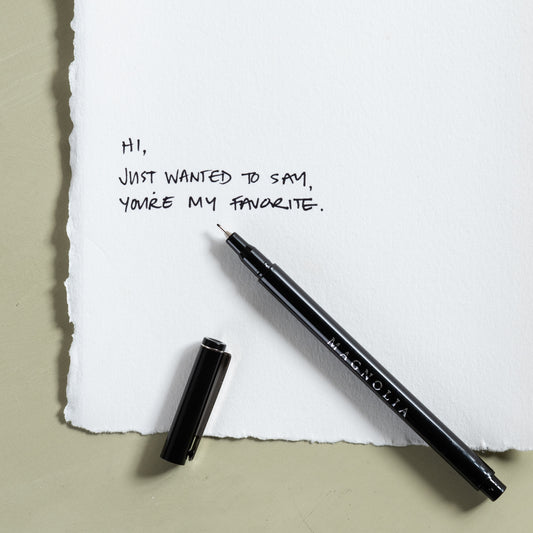 HI,
JUST WANTED TO SAY,
YOU'RE MY FAVORITE.
MAGNOLIA